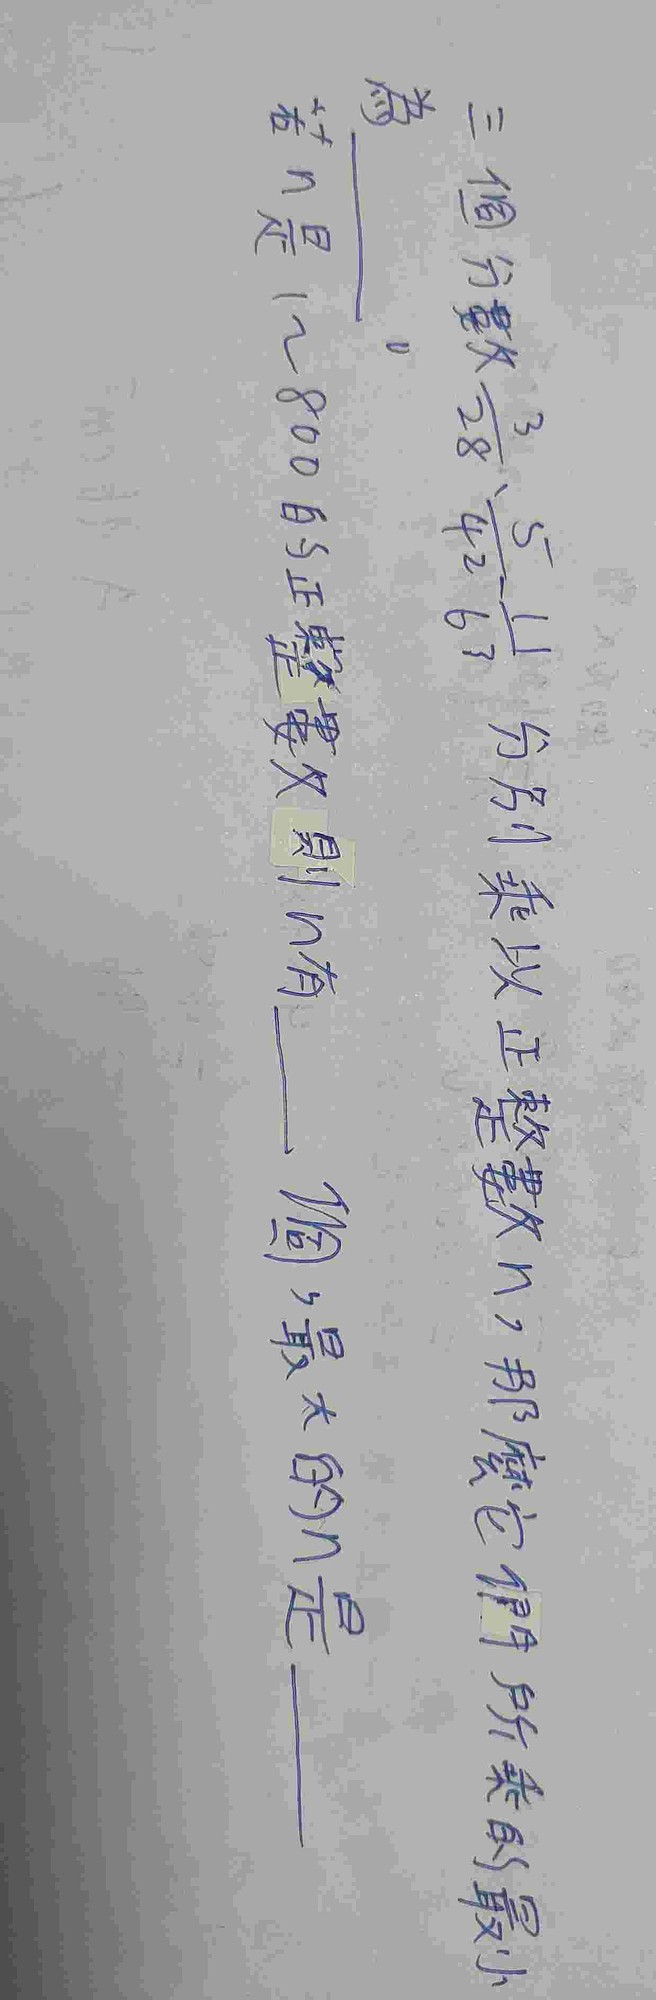 三個分數 3/28、5/42、11/63 分別乘以正整數n,那麼它們所乘的最小
為______。
若n是1~800的正整數則n有______個,最大的n是______